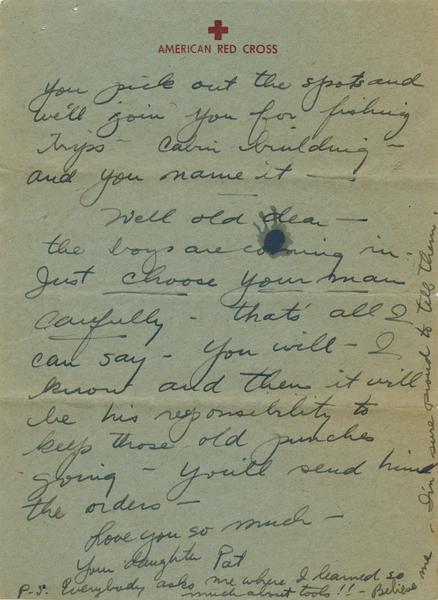 AMERICAN RED CROSS
you pick out the spots and
we'll join you for fishing
trips - cabin building -
and you name it -
Well old dear -
the boys are coming in.
Just choose your man
carefully - that's all I
can say - You will - I
know and then it will
be his responsibility to
keep those old punches
going - you'll send him
the orders -
Love you so much -
Your daughter Pat
P.S. Everybody asks me where I learned so
much about tools!! - Believe
me - I'm sure proud to tell them.